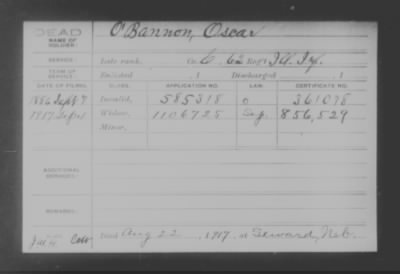 DEAD
NAME OF SOLDIER: O'Bannon, Oscar
SERVICE: Late rank, Co. C, 62 Reg't Ill. Inf.
TERM OF SERVICE: Enlisted , 1 Discharged , 1
DATE OF FILING. CLASS. APPLICATION NO. LAW. CERTIFICATE NO.
1886 Sept 7 Invalid, 585318 361078
1917 Widow, 1106725 856,529
Minor,
ADDITIONAL SERVICES:
REMARKS:
Died Aug 22, 1917, at Seward, Neb.